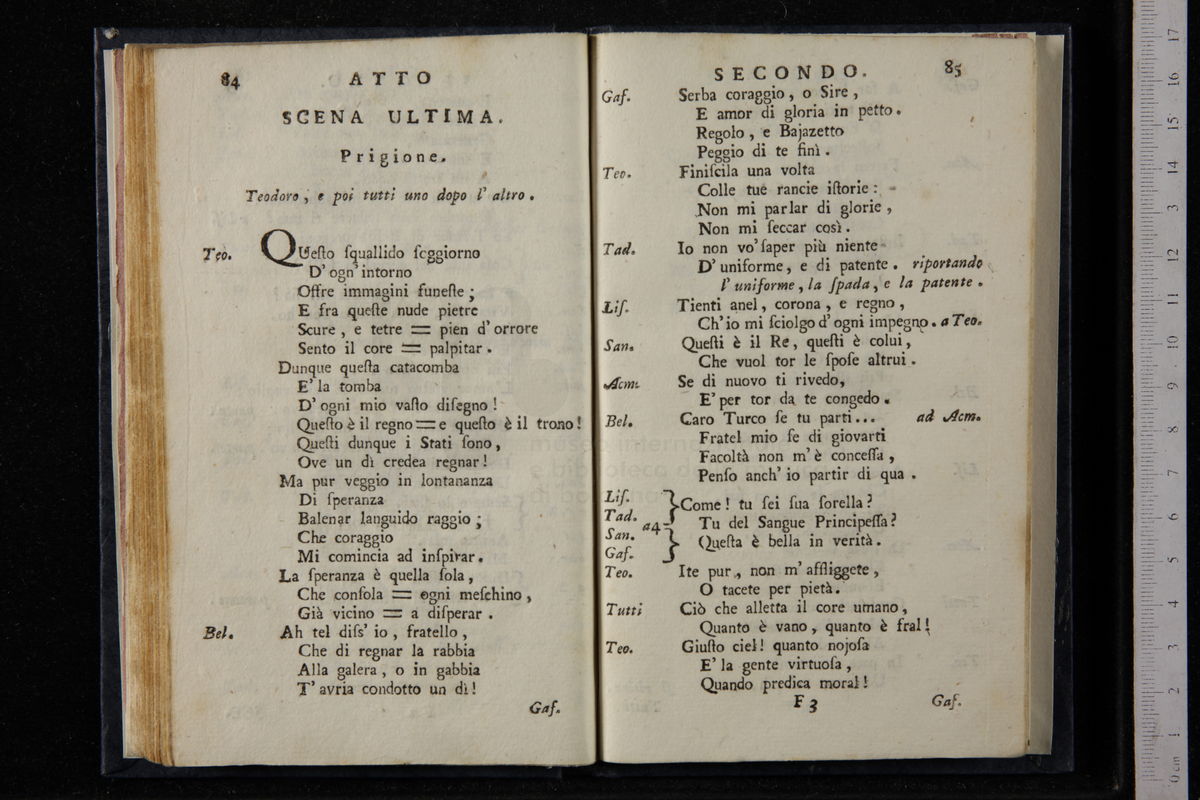 84 ATTO
SCENA ULTIMA.
Prigione.
Teodoro, e poi tutti uno dopo l' altro.
Teo. QUeſto ſquallido ſoggiorno
D' ogn' intorno
Offre immagini funeſte;
E fra queſte nude pietre
Scure, e tetre = pien d' orrore
Sento il core = palpitar.
Dunque queſta catacomba
E' la tomba
D' ogni mio vaſto diſegno!
Queſto è il regno = e queſto è il trono!
Queſti dunque i Stati ſono,
Ove un dì credea regnar!
Ma pur veggio in lontananza
Di ſperanza
Balenar languido raggio;
Che coraggio
Mi comincia ad inſpirar.
La ſperanza è quella ſola,
Che conſola = ogni meſchino,
Già vicino = a diſperar.
Bel. Ah tel diſs' io, fratello,
Che di regnar la rabbia
Alla galera, o in gabbia
T' avria condotto un dì!
Gaf.
SECONDO. 85
Gaf. Serba coraggio, o Sire,
E amor di gloria in petto.
Regolo, e Bajazetto
Peggio di te finì.
Teo. Finiſcila una volta
Colle tue rancie iſtorie:
Non mi parlar di glorie,
Non mi ſeccar così.
Tad. Io non vo' ſaper più niente
D' uniforme, e di patente. riportando
l' uniforme, la ſpada, e la patente.
Liſ. Tienti anel, corona, e regno,
Ch' io mi ſciolgo d' ogni impegno. a Teo.
San. Queſti è il Re, queſti è colui,
Che vuol tor le ſpoſe altrui.
Acm. Se di nuovo ti rivedo,
E' per tor da te congedo.
Bel. Caro Turco ſe tu parti... ad Acm.
Fratel mio ſe di giovarti
Facoltà non m' è conceſſa,
Penſo anch' io partir di qua.
Liſ.
Tad.
San.
Gaf.
a 4
Come! tu ſei ſua ſorella?
Tu del Sangue Principeſſa?
Queſta è bella in verità.
Teo. Ite pur, non m' affliggete,
O tacete per pietà.
Tutti Ciò che alletta il core umano,
Quanto è vano, quanto è fral!
Teo. Giuſto ciel! quanto nojoſa
E' la gente virtuoſa,
Quando predica moral!
F 3 Gaf.